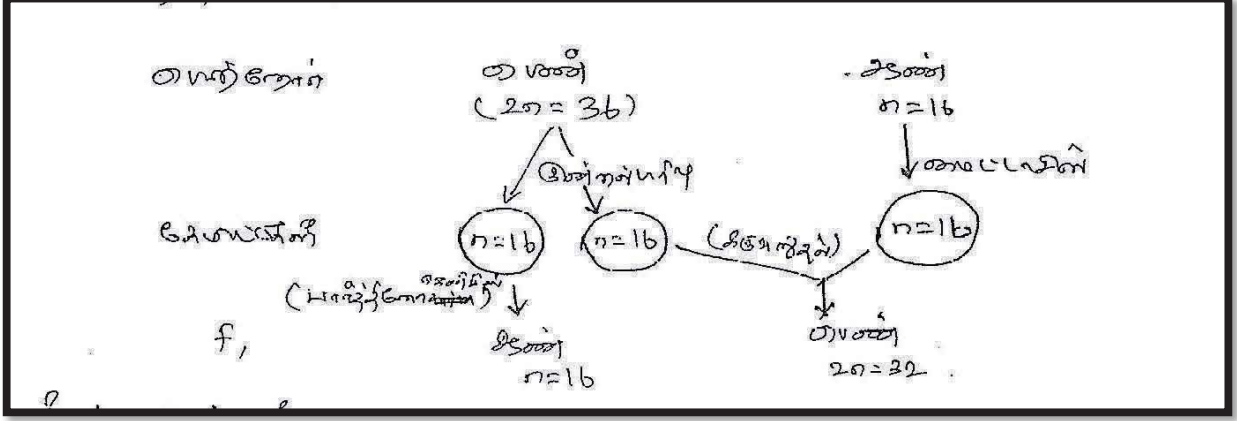 பெற்றோர் பெண் ஆண்
(2n = 36) n = 16
குன்றல்பிரிவு மைட்டாசிஸ்
கேமீட்கள் n=16 n=16 (கருவுறுதல்) n=16
(பார்த்தினோஜெனிசிஸ்)
f, ஆண் பெண்
n=16 2n=32